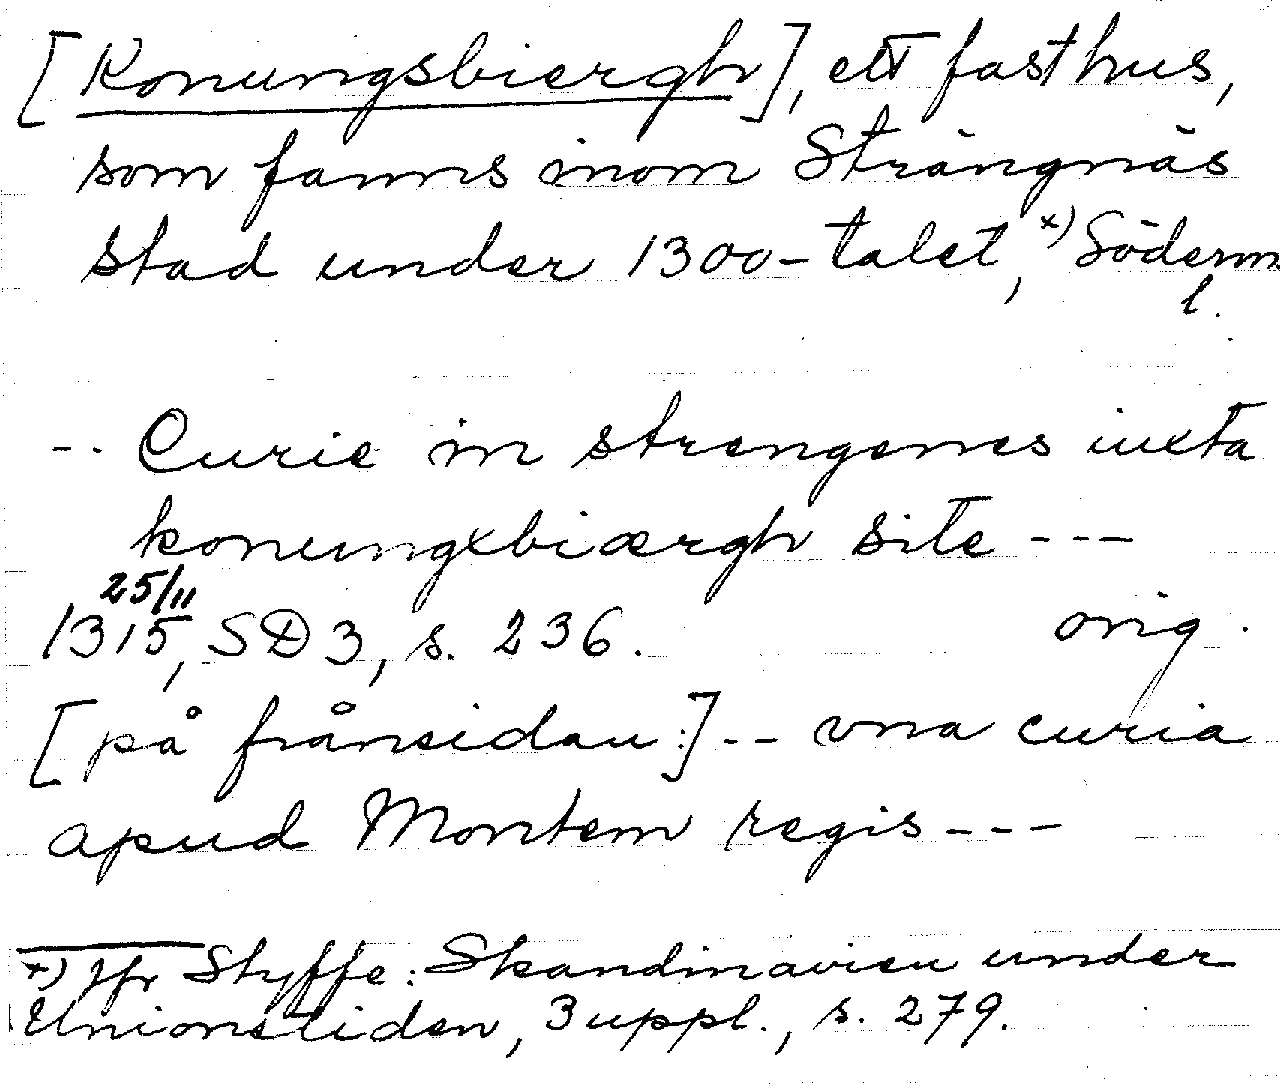 [Konungsbiergh], ett fast hus,
som fanns inom Strängnäs
stad under 1300-talet,x) Söderm
l.
-- Curie in strengenes iuxta
konungxbiærgh site ---
25/11
1315, SD 3, s. 236. orig.
[på frånsidan:] -- vna curia
apud Montem regis ---
x) Jfr Styffe: Skandinavien under
Unionstiden, 3 uppl., s. 279.